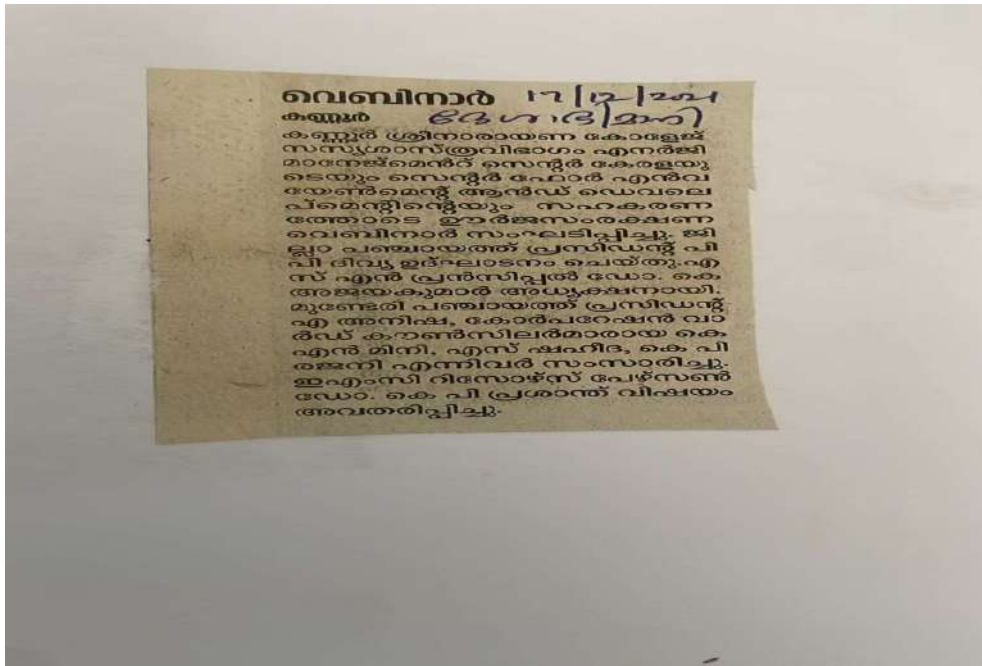 വെബിനാർ 17/12/2021
കണ്ണൂർ ദേശാഭിമാനി
കണ്ണൂർ ശ്രീനാരായണ കോളേജ്
സസ്യശാസ്ത്രവിഭാഗം എനർജി
മാനേജ്മെൻറ് സെന്റർ കേരളയു
ടെയും സെന്റർ ഫോർ എൻവ
യേൺമെന്റ് ആൻഡ് ഡെവലെ
പ്മെന്റിന്റെയും സഹകരണ
ത്തോടെ ഊർജസംരക്ഷണ
വെബിനാർ സംഘടിപ്പിച്ചു. ജി
ല്ലാ പഞ്ചായത്ത് പ്രസിഡന്റ് പി
പി ദിവ്യ ഉദ്ഘാടനം ചെയ്തു.എ
സ് എൻ പ്രൻസിപ്പൽ ഡോ. കെ
അജയകുമാർ അധ്യക്ഷനായി.
മുണ്ടേരി പഞ്ചായത്ത് പ്രസിഡന്റ്
എ അനിഷ, കോർപറേഷൻ വാ
ർഡ് കൗൺസിലർമാരായ കെ
എൻ മിനി, എസ് ഷഹീദ, കെ പി
രജനി എന്നിവർ സംസാരിച്ചു.
ഇഎംസി റിസോഴ്സ് പേഴ്സൺ
ഡോ. കെ പി പ്രശാന്ത് വിഷയം
അവതരിപ്പിച്ചു.